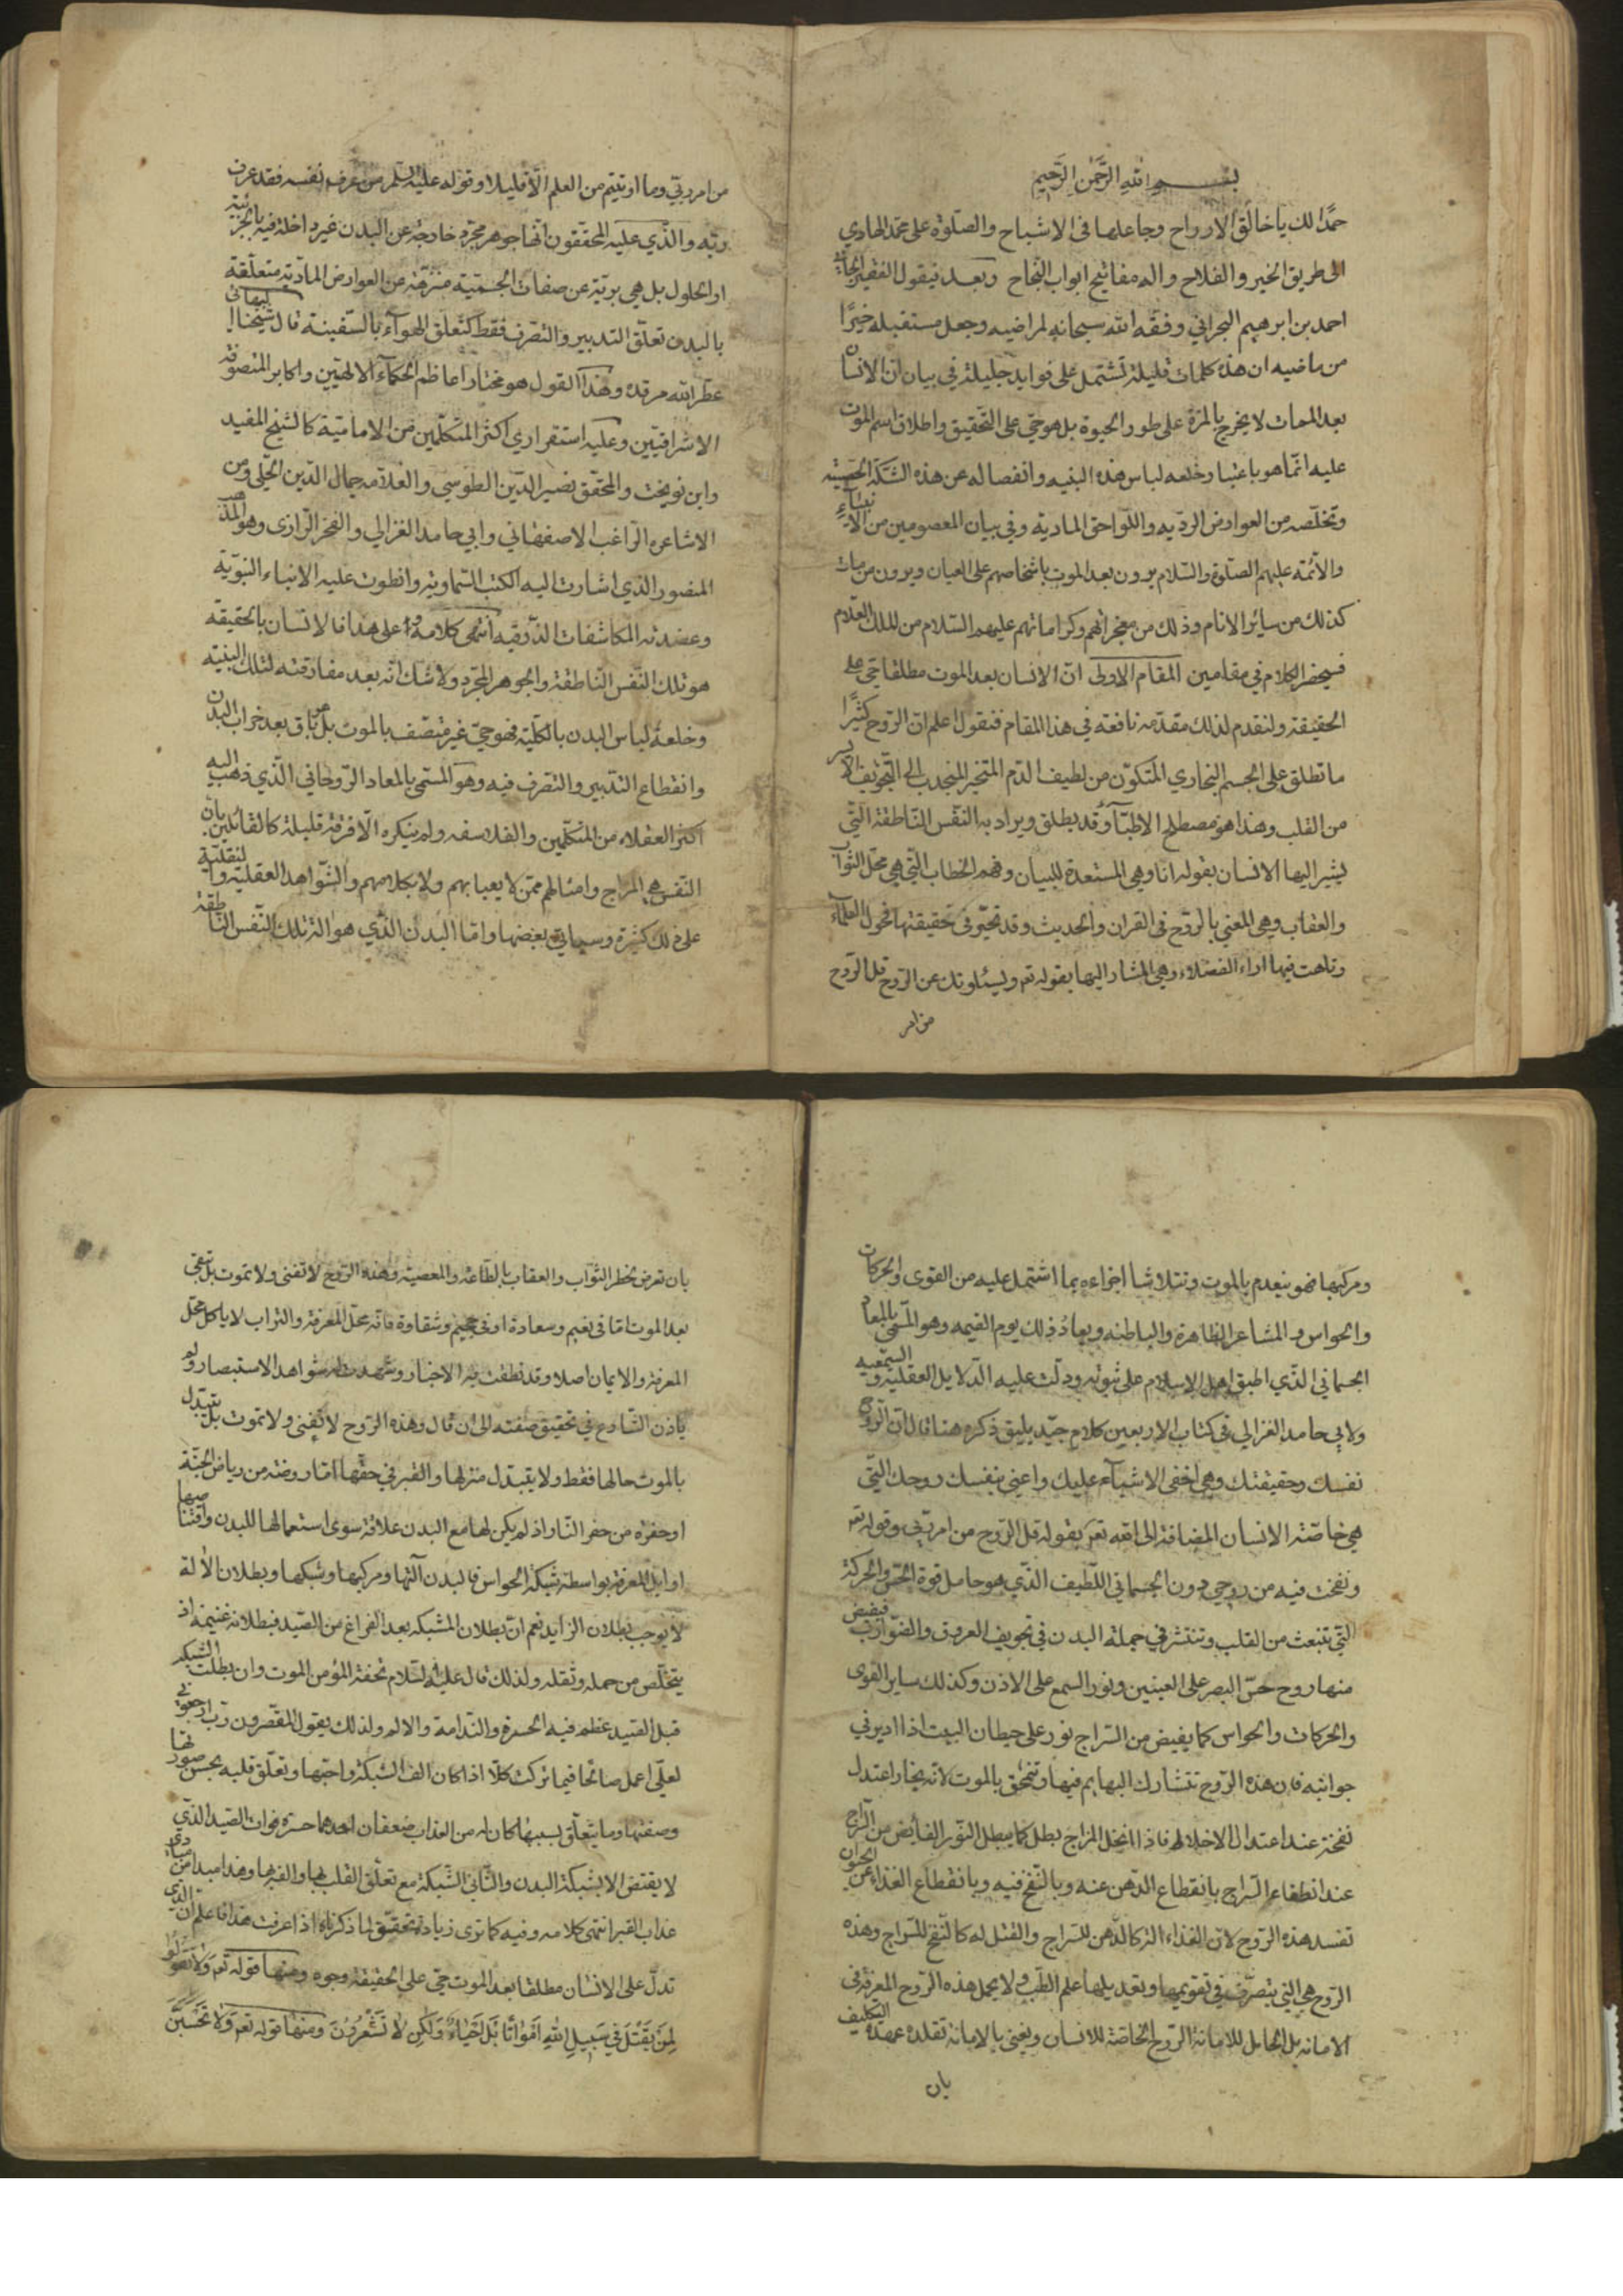 بسم الله الرحمن الرحيم
حمدًا لك يا خالق الارواح وجاعلها في الاشباح والصلوة على محمد الهادي
الى طريق الخير والفلاح واله مفاتيح ابواب النجاح وبعد فيقول الفقير الجاني
احمد بن ابرهيم البحراني وفقه الله سبحانه لمراضيه وجعل مستقبله خيرًا
من ماضيه ان هذه كلمات قليلة تشتمل على فوايد جليلة في بيان ان الانسان
بعد الممات لا يخرج بالمرة على طور الحيوة بل هو حي على التحقيق واطلاق اسم الموت
عليه انما هو باعتبار خلعه لباس هذه البنيه وانفصاله عن هذه الشبكة الحسية
وتخلصه من العوارض الرديه واللواحق المادية وفي بيان المعصومين من الانبياء
والائمه عليهم الصلوة والسلام يرون بعد الموت باشخاصهم على العيان ويرون من مات
كذلك من سائر الانام وذلك من معجزاتهم وكراماتهم عليهم السلام من الملك العلام
فيحضر الكلام في مقامين المقام الاولى ان الانسان بعد الموت مطلقا حي على
الحقيقة ولنقدم لذلك مقدمة نافعة في هذا المقام فنقول اعلم ان الروح كثيرًا
ما تطلق على الجسم البخاري المتكون من لطيف الدم المتبخر المنجدب الى التجويف الايسر
من القلب وهذا هو مصطلح الاطباء وقد يطلق ويراد به النفس الناطقة التي
يشير اليها الانسان بقوله انا وهي المستعدة للبيان وفهم الخطاب التي هي محل الثواب
والعقاب وهي المعني بالروح في القران والحديث وقد تحير في حقيقتها فحول العلماء
وتاهت فيها اراء الفضلاء وهي المشار اليها بقوله تع ويسئلونك عن الروح قل الروح
من امر
من امر ربي وما اوتيتم من العلم الا قليلا وقوله عليه السلم من عرف نفسه فقد عرف
ربه والذي عليه المحققون انها جوهر مجرد خارجة عن البدن غير داخلة فيه بالجزئية
او الحلول بل هي برية عن صفات الجسمية منزهة عن العوارض المادية متعلقة
بالبدن تعلق التدبير والتصرف فقط كتعلق الهوآء بالسفينة قال شيخنا البهائي
عطر الله مرقده وهذا القول هو مختار اعاظم الحكمآء الالهيين واكابر المتصوفة
الاشراقيين وعليه استقر اري اكثر المتكلمين من الامامية كالشيخ المفيد
وابن نوبخت والمحقق نصير الدين الطوسي والعلامه جمال الدين الحلي ومن
الاشاعره الراغب الاصفهاني وابي حامد الغزالي والفخر الرازى وهو المذهب
المنصور الذي اشارت اليه الكتب السماوية وانطوت عليه الانباء النبوية
وعضدته المكاشفات الذوقيه انتهى كلامه وعلى هذا فالانسان بالحقيقة
هو تلك النفس الناطقة والجوهر المجرد ولا شك انه بعد مفارقته لتلك البنية
وخلعه لباس البدن بالكلية فهو حي غير متصف بالموت بل باق بعد خراب البدن
وانقطاع التدبير والتصرف فيه وهو المسمى بالمعاد الروحاني الذي ذهب اليه
اكثر العقلاء من المتكلمين والفلاسفه ولم ينكره الا فرقة قليلة كالقائلين بان
النفس هي المزاج وامثالهم ممن لا يعبا بهم ولا بكلامهم والشواهد العقلية والنقلية
على ذلك كثيرة وسياتي بعضها واما البدن الذي هو الة تلك النفس الناطقة
ومركبها فهو ينعدم بالموت وتتلاشا اجزاءه بما اشتمل عليه من القوى والحركات
والحواس والمشاعر الظاهرة والباطنه ويعاد ذلك يوم القيمه وهو المسمى بالمعاد
الجسماني الذي اطبق اهل الاسلام على ثبوته ودلت عليه الدلايل العقلية والسمعيه
ولابي حامد الغزالي في كتاب الاربعين كلام جيد يليق ذكره هنا قال ان الروح
نفسك وحقيقتك وهي اخفى الاشيآء عليك واعني بنفسك روحك التي
هي خاصة الانسان المضافة الى الله تعر بقوله قل الروح من امر ربي وقوله تع
ونفخت فيه من روحي دون الجسماني اللطيف الذي هو حامل قوة الحس والحركة
التي تنبعث من القلب وتنتشر في جملة البدن في تجويف العروق والضوارب فيفيض
منها روح حس البصر على العينين ونور السمع على الاذن وكذلك ساير القوى
والحركات والحواس كما يفيض من السراج نور على حيطان البيت اذا ادير في
جوانبه فان هذه الروح تتشارك البهايم فيها وتنمحق بالموت لانه بخار اعتدل
نضجه عند اعتدال الاخلاط فاذا انحل المزاج بطل كما يبطل النور الفايض من السراج
عند انطفاء السراج بانقطاع الدهن عنه وبالنفخ فيه وبانقطاع الغذاء عن الحيوان
تفسد هذه الروح لان الغذاء له كالدهن للسراج والقتل له كالنفخ للسراج وهذه
الروح هي التي يتصرف في تقويمها وتعديلها علم الطب ولا يحمل هذه الروح المعرفة في
الامانه بل الحامل للامانة الروح الخاصة للانسان ويعني بالامانة تقلده عهدة التكليف
بان
بان تعرض لخطر الثواب والعقاب بالطاعة والمعصية وهذه الروح لا تفنى ولا تموت بل تبقى
بعد الموت اما في نعيم وسعادة او في جحيم وشقاوة فانه محل المعرفة والتراب لا ياكل محل
المعرفة والايمان اصلا وقد نطقت به الاخبار وشهدت له شواهد الاستبصار ولم
ياذن الشارع في تحقيق صفته الى ان قال وهذه الروح لا تفنى ولا تموت بل يتبدل
بالموت حالها فقط ولا يتبدل منزلها والقبر في حقها اما روضة من رياض الجنة
او حفرة من حفر النار اذ لم يكن لها مع البدن علاقة سوى استعمالها للبدن واقتناصها
اوايل المعرفة بواسطة شبكة الحواس فالبدن آلتها ومركبها وشبكها وبطلان الالة
لا يوجب بطلان الزايد نعم ان بطلان الشبكه بعد الفراغ من الصيد فبطلانه غنيمة اذ
يتخلص من حمله وثقله ولذلك قال عليه السلام تحفة المؤمن الموت وان بطلت الشبكه
قبل الصيد عظم فيه الحسرة والندامة والالم ولذلك يقول المقصرون رب ارجعوني
لعلى اعمل صالحا فيما تركت كلا اذا كان الف الشبكة واحبها وتعلق قلبه بحسن صورتها
وصفتها وما يتعلق بسببها كان له من العذاب ضعفان احدهما حسرة فوات الصيد الذي
لا يقتنص الا بشبكة البدن والثاني الشبكة مع تعلق القلب بها والفه لها وهذا مبدا من مبادى
عذاب القبر انتهى كلامه وفيه كما ترى زيادة تحقيق لما ذكرناه اذا عرفت هذا فاعلم ان الذي
تدل على الانسان مطلقا بعد الموت حي على الحقيقة وجوه ومنها قوله تع وَلا تقولوا
لِمَن يُقْتَلُ في سَبيلِ اللهِ اَمْواتًا بَل اَحْياءٌ وَلكِن لا تَشْعُرُونَ ومنها قوله تعر وَلا تَحْسَبَنَّ